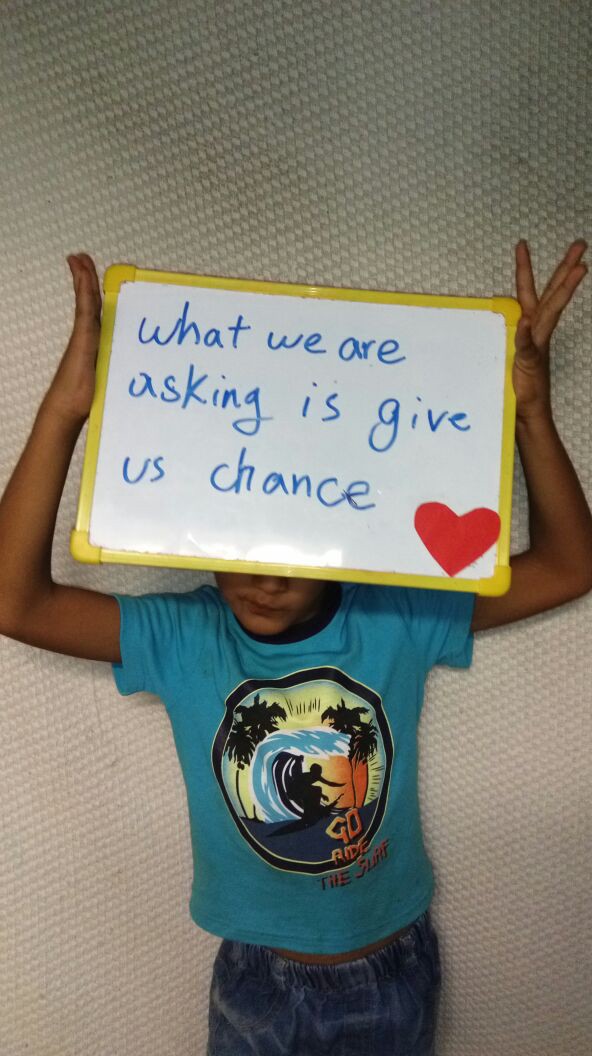 what we are
asking is give
us chance
GO
RIDE
THE SURF